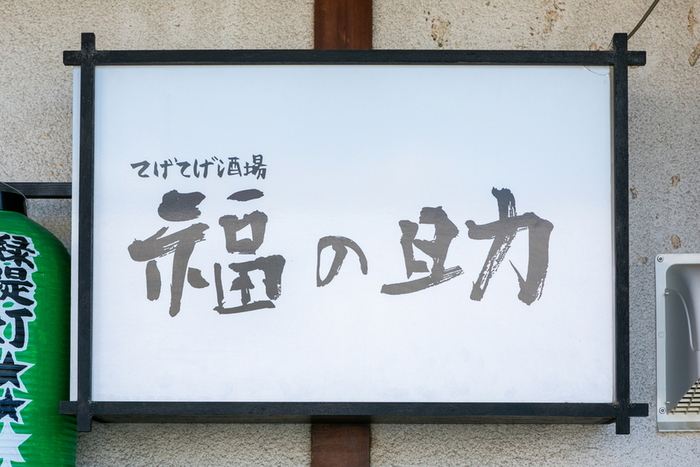 てげてげ酒場
福の助
緑提灯
★★★